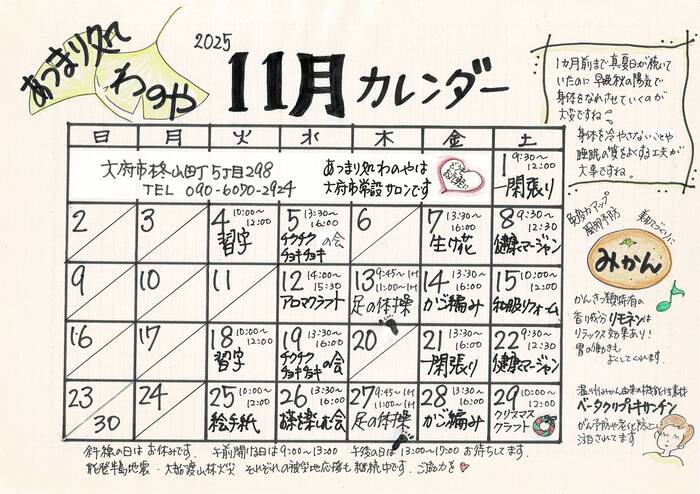 あつまり処
わのや
2025
11月カレンダー
1カ月前まで真夏日が続いて
いたのに早晩秋の陽気で
身体をなれさせていくのが
大変ですね。
身体を冷やさないことや
睡眠の質をよくする工夫が
大事ですね。
日 月 火 水 木 金 土
大府市柊山町5丁目298
TEL 090-6070-2924
あつまり処わのやは
大府市常設サロンです
1 9:30～12:00 一閑張り
2
3
4 10:00～12:00 習字
5 13:30～16:00 チクチクチョキチョキの会
6
7 13:30～16:00 生け花
8 9:30～12:30 健康マージャン
9
10
11
12 14:00～15:30 アロマクラフト
13 9:45～1H 11:00～1H 足の体操
14 13:30～16:00 かご編み
15 10:00～12:00 和服リフォーム
16
17
18 10:00～12:00 習字
19 13:30～16:00 チクチクチョキチョキの会
20
21 13:30～16:00 一閑張り
22 9:30～12:30 健康マージャン
23
30
24
25 10:00～12:00 絵手紙
26 13:30～16:00 碁を楽しむ会
27 9:45～1H 11:00～1H 足の体操
28 13:30～16:00 かご編み
29 10:00～12:00 クリスマスクラフト
免疫力アップ
風邪予防
美肌づくりに
みかん
かんきつ類特有の
香り成分リモネンは
リラックス効果あり！
胃の働きも
よくしてくれます。
温州みかん由来の機能性素材
ベータクリプトキサンチン
がん予防や老化防止に
注目されてます
斜線の日はお休みです。午前開ける日は9:00～13:00 午後の日は13:00～17:00 お待ちしてます。
能登半島地震・大船渡山林火災 それぞれの被災地応援も継続中です。ご協力を